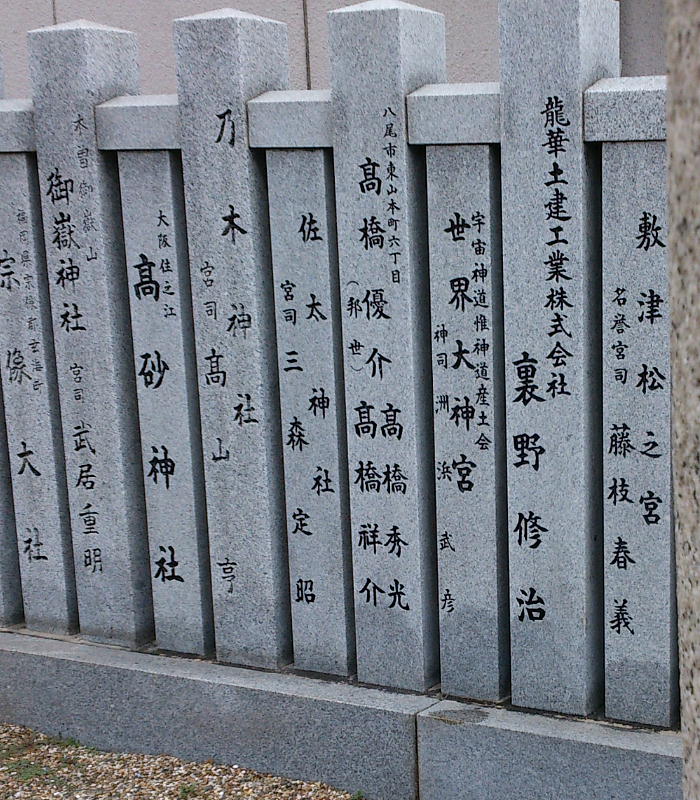 敷津松之宮
名誉宮司 藤枝春義
龍華土建工業株式会社
裏野修治
宇宙神道惟神道産土会
世界大神宮
神司 洲浜武彦
八尾市東山本町六丁目
高橋優介
(邦世)
高橋秀光
高橋祥介
佐太神社
宮司 三森定昭
乃木神社
宮司 高山亨
大阪住之江
高砂神社
木曽御嶽山
御嶽神社
宮司 武居重明
宗像大社